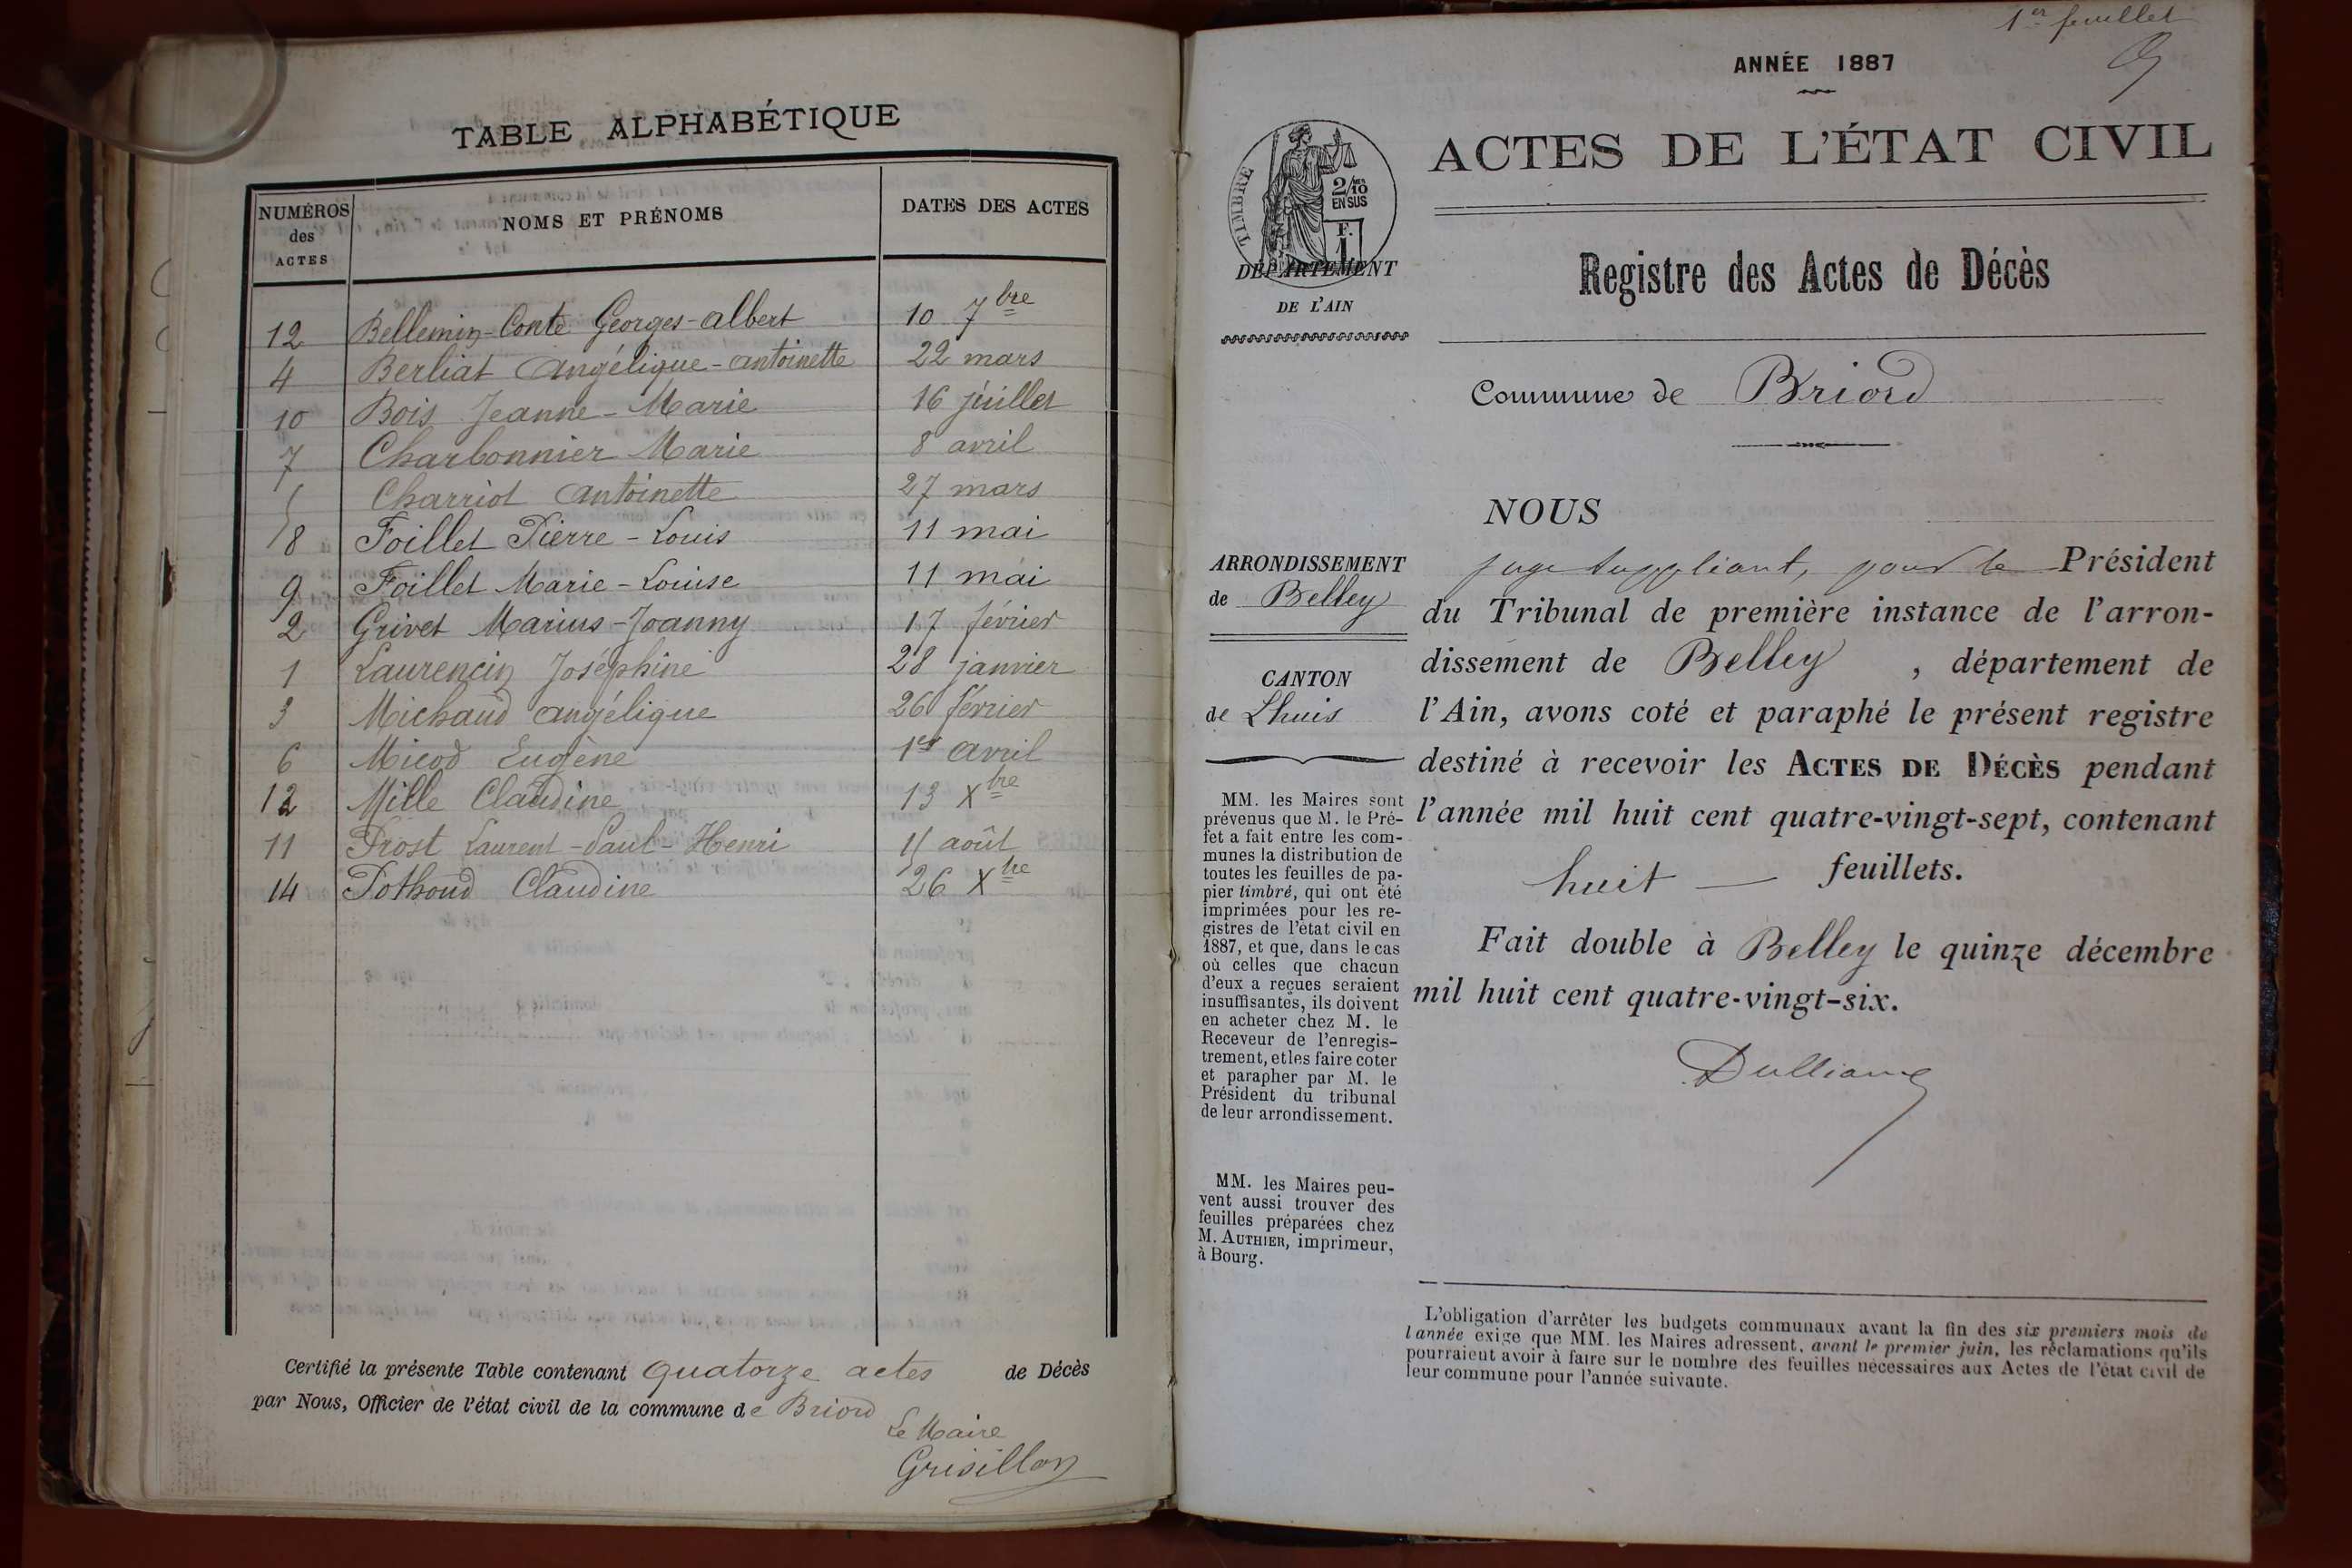 TABLE ALPHABÉTIQUE
NUMÉROS des ACTES NOMS ET PRÉNOMS DATES DES ACTES
12 Bellemin-Conte Georges-albert 10 7bre
4 Berliat Angélique-antoinette 22 mars
10 Bois Jeanne-Marie 16 juillet
7 Charbonnier Marie 8 avril
5 Charriot Antoinette 27 mars
8 Foillet Pierre-Louis 11 mai
9 Foillet Marie-Louise 11 mai
2 Grivet Marius-Joanny 17 février
1 Laurencin Joséphine 28 janvier
3 Michaud angélique 26 février
6 Micod Eugène 1er avril
12 Mille Claudine 13 Xbre
11 Prost Laurent-Paul-Henri août
14 Pothoud Claudine 26 Xbre
Certifié la présente Table contenant quatorze actes de Décès
par Nous, Officier de l'état civil de la commune de Briord
Le Maire
Grisillon
1er feuillet
ANNÉE 1887
TIMBRE
2/10 EN SUS
F.
1
ACTES DE L'ÉTAT CIVIL
DÉPARTEMENT
DE L'AIN
Registre des Actes de Décès
Commune de Briord
ARRONDISSEMENT
de Belley
CANTON
de Lhuis
MM. les Maires sont
prévenus que M. le Pré-
fet a fait entre les com-
munes la distribution de
toutes les feuilles de pa-
pier timbré, qui ont été
imprimées pour les re-
gistres de l'état civil en
1887, et que, dans le cas
où celles que chacun
d'eux a reçues seraient
insuffisantes, ils doivent
en acheter chez M. le
Receveur de l'enregis-
trement, et les faire coter
et parapher par M. le
Président du tribunal
de leur arrondissement.
MM. les Maires peu-
vent aussi trouver des
feuilles préparées chez
M. AUTHIER, imprimeur,
à Bourg.
NOUS
juge suppléant, pour le Président
du Tribunal de première instance de l'arron-
dissement de Belley, département de
l'Ain, avons coté et paraphé le présent registre
destiné à recevoir les ACTES DE DÉCÈS pendant
l'année mil huit cent quatre-vingt-sept, contenant
huit — feuillets.
Fait double à Belley le quinze décembre
mil huit cent quatre-vingt-six.
L'obligation d'arrêter les budgets communaux avant la fin des six premiers mois de
l'année exige que MM. les Maires adressent, avant le premier juin, les réclamations qu'ils
pourraient avoir à faire sur le nombre des feuilles nécessaires aux Actes de l'état civil de
leur commune pour l'année suivante.